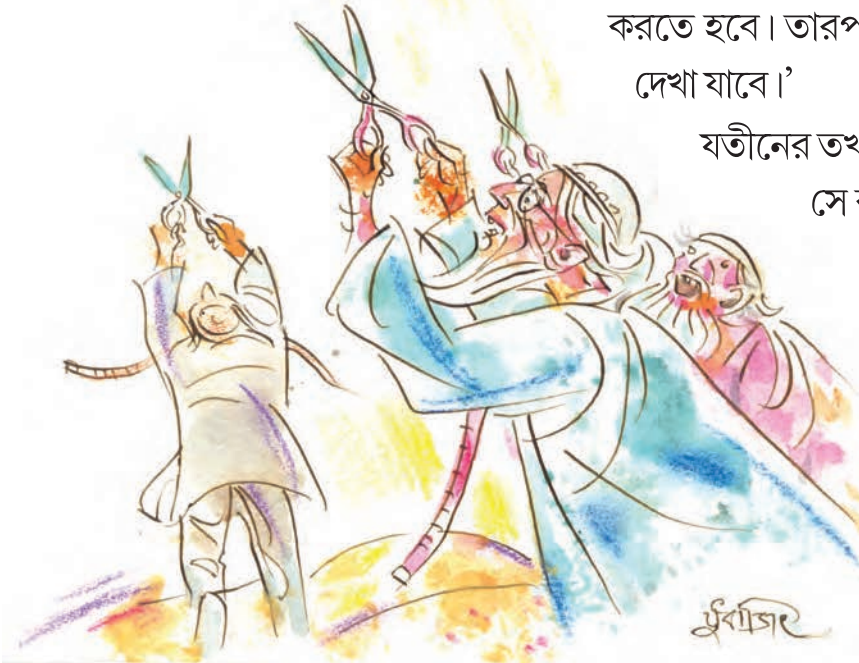 করতে হবে। তারপ
দেখা যাবে।’
যতীনের তখ
সে
যুধাজিৎ